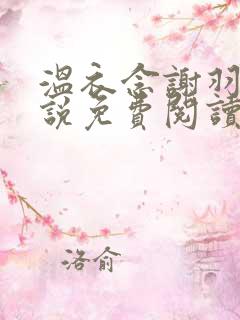 溫衣念謝羽
說免費閱讀
洛俞